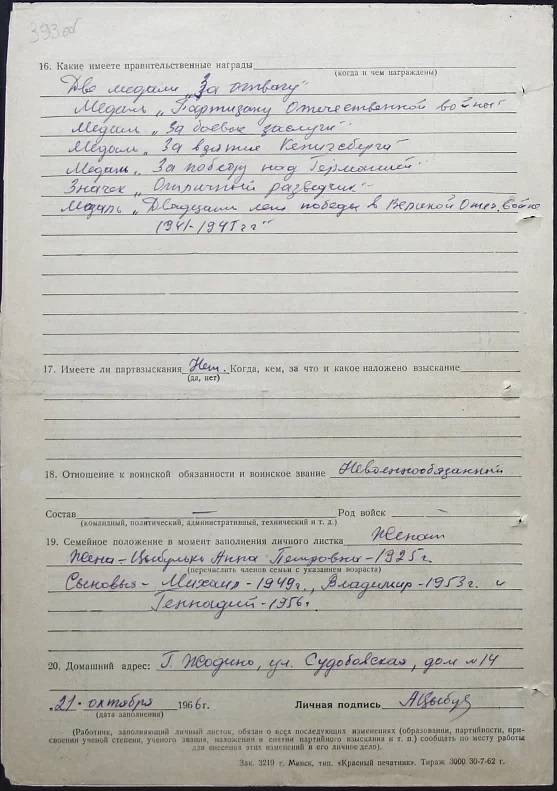 393об
16. Какие имеете правительственные награды
(когда и чем награждены)
Две медали „За отвагу"
Медаль „Партизану Отечественной войны"
Медаль „За боевые заслуги"
Медаль „За взятие Кенигсберга"
Медаль „За победу над Германией"
Значек „Отличный разведчик"
Медаль „Двадцать лет победы в Великой Отеч. войне
1941-1945 гг"
17. Имеете ли партвзыскания Нет. Когда, кем, за что и какое наложено взыскание
(да, нет)
18. Отношение к воинской обязанности и воинское звание Невоеннообязанный
Состав — Род войск —
(командный, политический, административный, технический и т. д.)
19. Семейное положение в момент заполнения личного листка Женат
Жена - Цыбулько Анна Петровна - 1925 г.
(перечислить членов семьи с указанием возраста)
Сыновья - Михаил - 1949 г., Владимир - 1953 г. и
Геннадий - 1956 г.
20. Домашний адрес: г. Жодино, ул. Судобовская, дом № 14
„21" октября 1966 г. Личная подпись АЦыбул
(дата заполнения)
(Работник, заполняющий личный листок, обязан о всех последующих изменениях (образовании, партийности, при-
своении ученой степени, ученого звания, наложении и снятии партийного взыскания и т. п.) сообщать по месту работы
для внесения этих изменений в его личное дело).
Зак. 3219 г. Минск, тип. «Красный печатник». Тираж 3000 30-7-62 г.